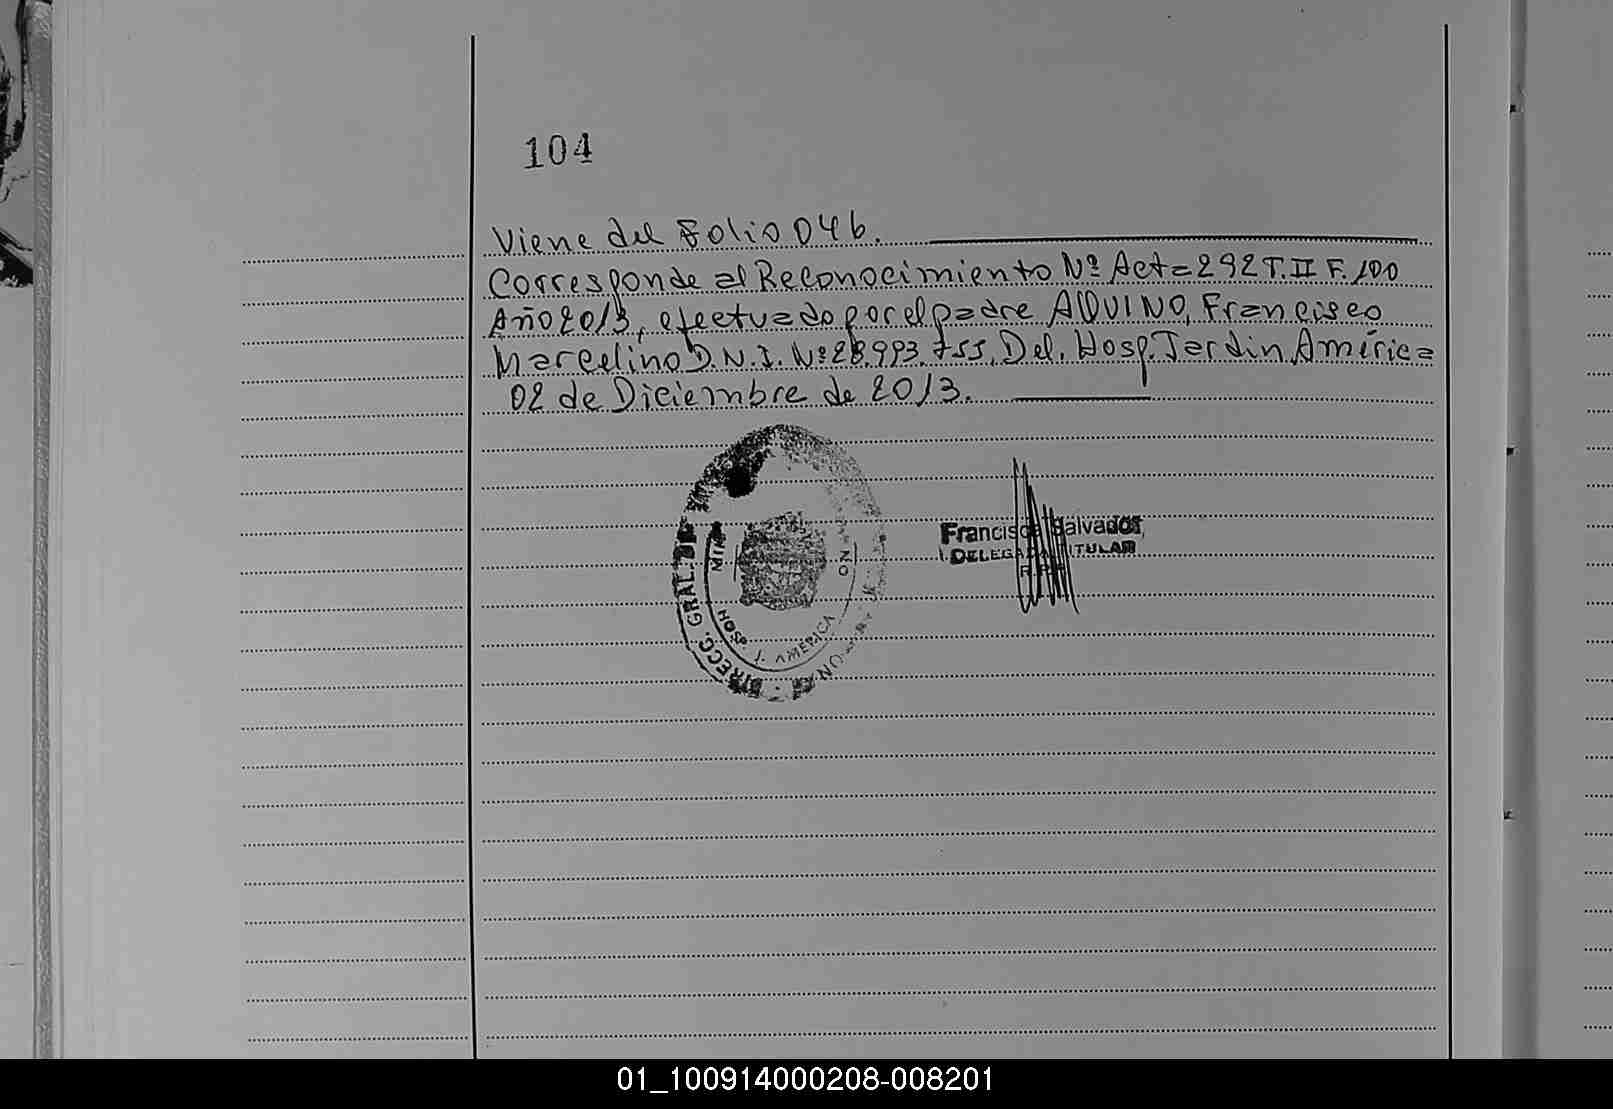 104
Viene del Folio 046.
Corresponde al Reconocimiento Nº Acta 292 T. II F. 100
Año 2013, efectuado por el padre AQUINO, Francisco
Marcelino D.N.I. Nº 28.993.755, Del. Hosp. Jardin América
02 de Diciembre de 2013.
DIRECC. GRAL. DE
HOSP. J. AMERICA
Francisco Salvador
DELEGADA TITULAR
01_100914000208-008201